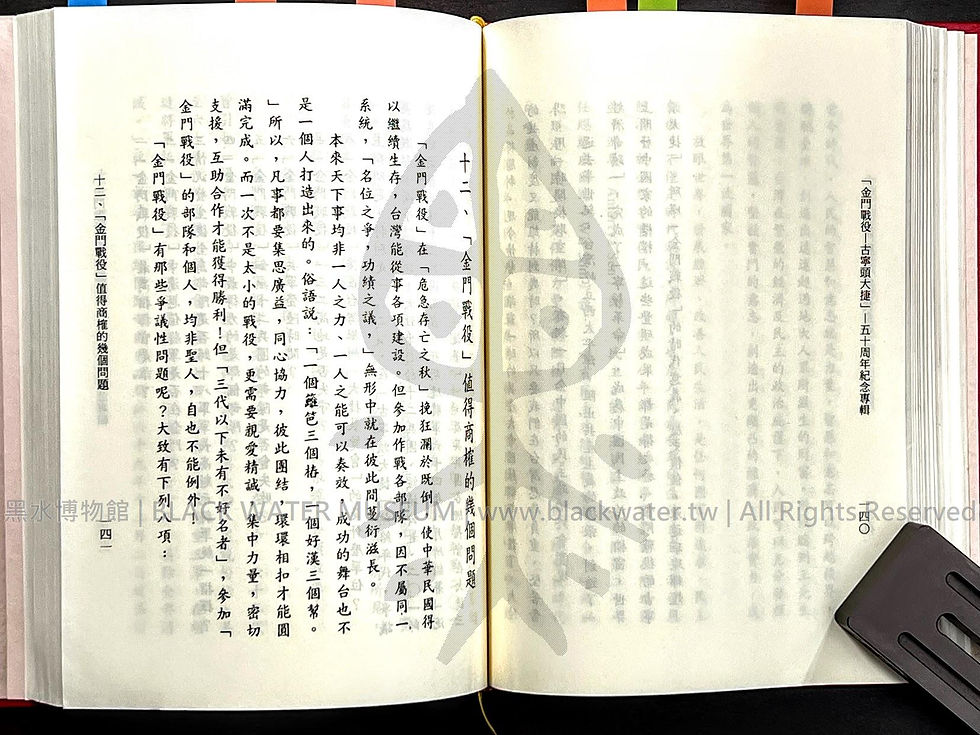 「金門戰役—古寧頭大捷」—五十周年紀念專輯
一四〇
十二、「金門戰役」值得商榷的幾個問題
「金門戰役」在「危急存亡之秋」挽狂瀾於既倒，使中華民國得
以繼續生存，台灣能從事各項建設。但參加作戰各部隊，因不屬同一
系統，「名位之爭，功績之議，」無形中就在彼此間蔓衍滋長。
本來天下事均非一人之力、一人之能可以奏效，成功的舞台也不
是一個人打造出來的。俗語說：「一個籬笆三個樁，一個好漢三個幫。
」所以，凡事都要集思廣益，同心協力，彼此團結，環環相扣才能圓
滿完成。而一次不是太小的戰役，更需要親愛精誠，集中力量，密切
支援，互助合作才能獲得勝利！但「三代以下未有不好名者」，參加「
金門戰役」的部隊和個人，均非聖人，自也不能例外。
「金門戰役」有那些爭議性問題呢？大致有下列八項：
十二、「金門戰役」值得商榷的幾個問題
一四一
黑水博物館 | BLACK WATER MUSEUM | www.blackwater.tw | All Rights Reserved